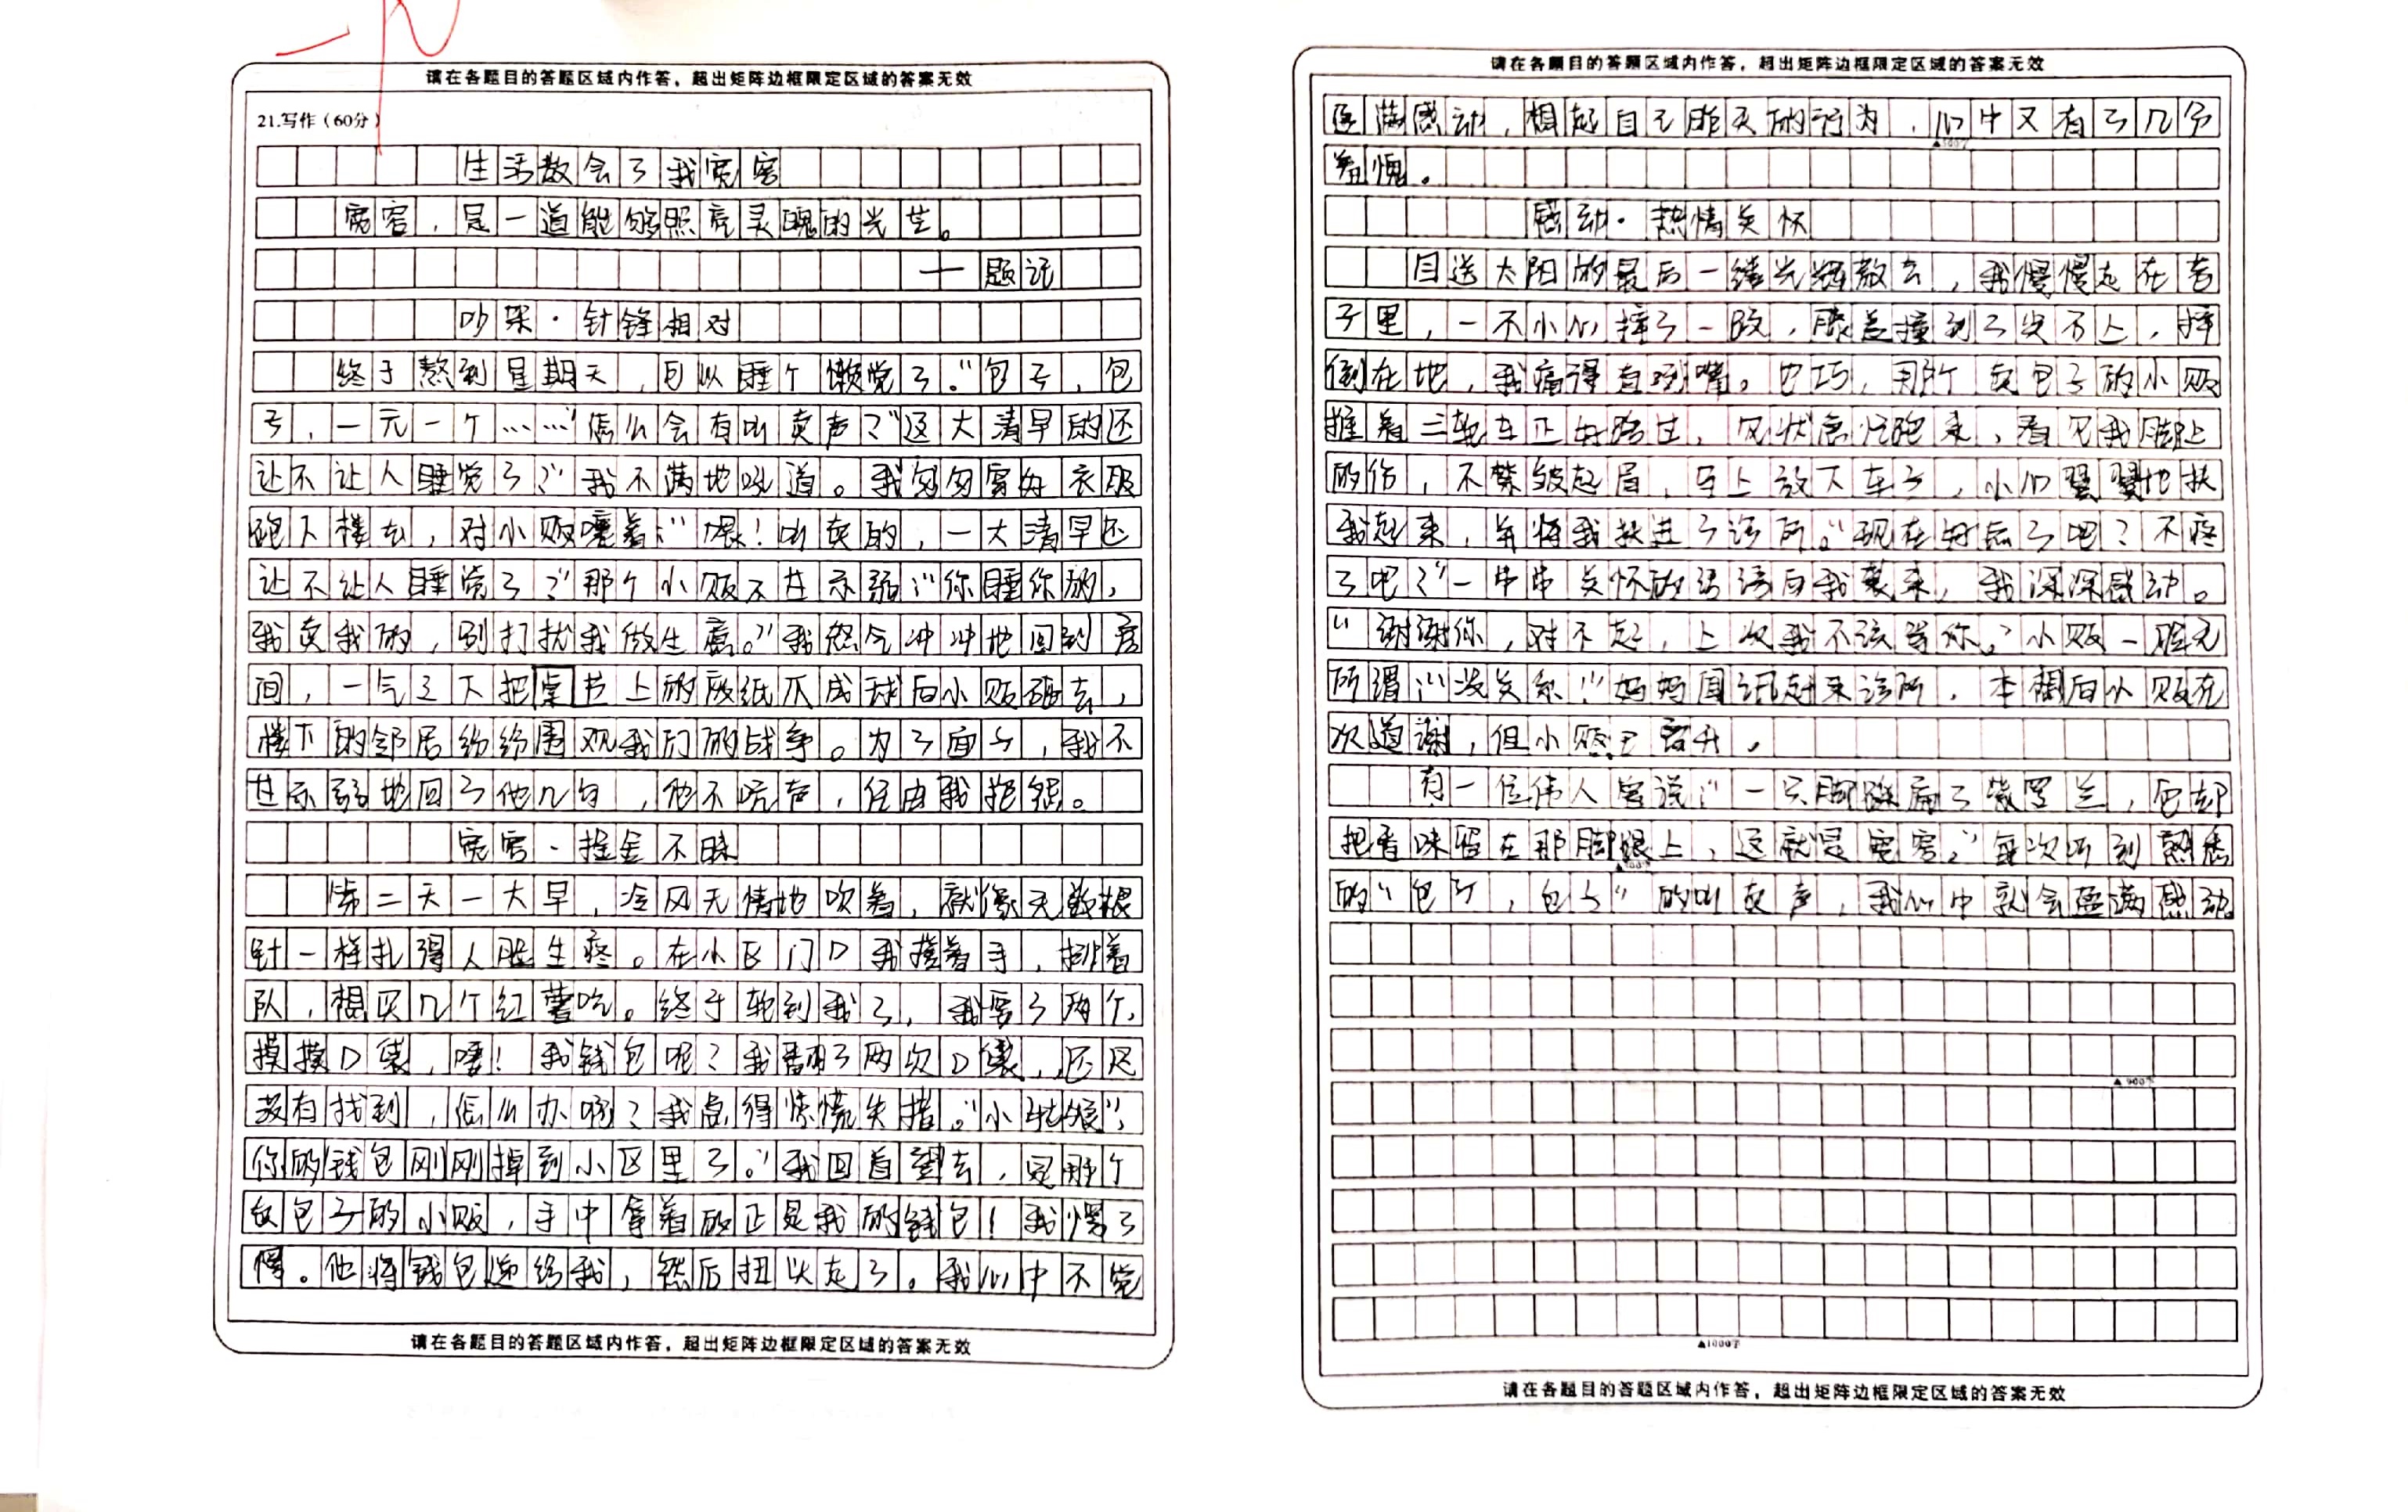 请在各题目的答题区域内作答，超出矩阵边框限定区域的答案无效
21.写作（60分）
生活教会了我宽容
宽容，是一道能够照亮灵魂的光芒。
——题记
吵架·针锋相对
终于熬到星期天，可以睡个懒觉了。“包子，包
子，一元一个……”怎么会有叫卖声？“这大清早的还
让不让人睡觉了？”我不满地吼道。我匆匆穿好衣服
跑下楼去，对小贩嚷着：“喂！叫卖的，一大清早还
让不让人睡觉了？”那个小贩不甘示弱：“你睡你的，
我卖我的，别打扰我做生意。”我怒气冲冲地回到房
间，一气之下把桌书上的废纸爪成球向小贩砸去，
楼下的邻居纷纷围观我们的战争。为了面子，我不
甘示弱地回了他几句，他不吭声，任由我抱怨。
宽容·拾金不昧
第二天一大早，冷风无情地吹着，就像无数根
针一样扎得人脸生疼。在小区门口我搓着手，排着
队，想买几个红薯吃。终于轮到我了，我要了两个，
摸摸口袋，哎！我钱包呢？我翻了两次口袋，还是
没有找到，怎么办呀？我急得惊慌失措。“小姑娘”，
你的钱包刚刚掉到小区里了。”我回首望去，见那个
卖包子的小贩，手中拿着的正是我的钱包！我愣了
愣。他将钱包递给我，然后扭头走了。我心中不觉
请在各题目的答题区域内作答，超出矩阵边框限定区域的答案无效
请在各题目的答题区域内作答，超出矩阵边框限定区域的答案无效
盈满感动，想起自己昨天的行为，心中又有了几分
羞愧。
感动·热情关怀
目送太阳的最后一缕光辉散去，我慢慢走在巷
子里，一不小心摔了一跤，膝盖撞到了尖石上，摔
倒在地，我痛得直咧嘴。也巧，那个卖包子的小贩
推着三轮车正好路过，见状急忙跑来，看见我脚上
的伤，不禁皱起眉，马上放下车子，小心翼翼地扶
我起来，并将我扶进了诊所。“现在好点了吧？不疼
了吧？”一串串关怀的话语向我袭来，我深深感动。
“谢谢你，对不起，上次我不该骂你。”小贩一脸无
所谓：“没关系！”妈妈闻讯赶来诊所，本想向小贩在
次道谢，但小贩已离开。
有一位伟人曾说：“一只脚踩扁了紫罗兰，它却
把香味留在那脚跟上，这就是宽容。”每次听到熟悉
的“包子，包子”的叫卖声，我心中就会盈满感动。
▲900字
▲1000字
请在各题目的答题区域内作答，超出矩阵边框限定区域的答案无效